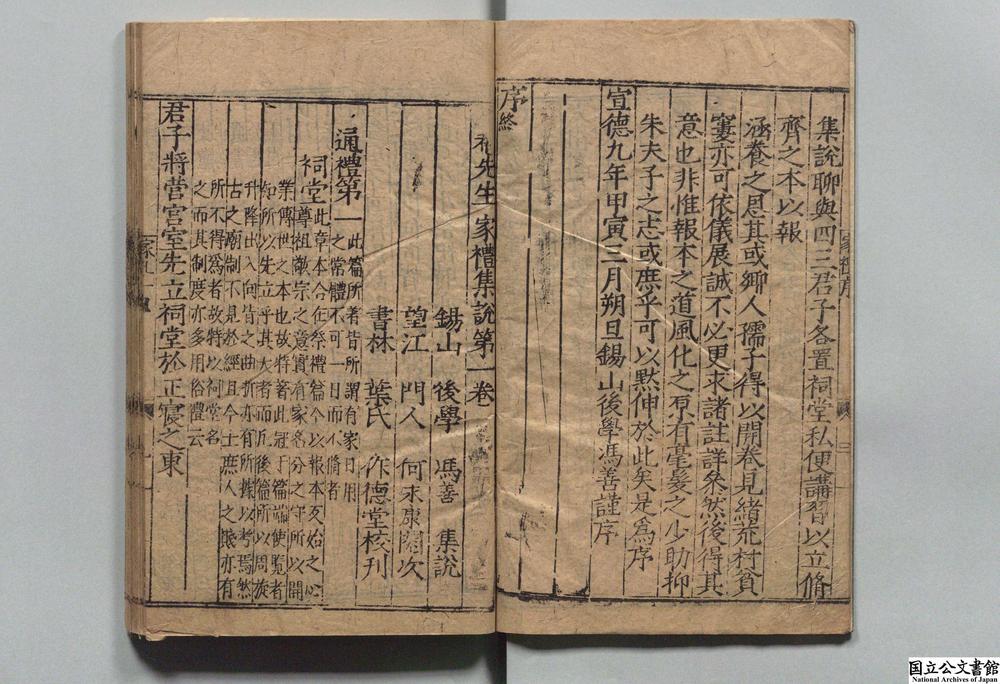 集說聊與四三君子各置祠堂私便講習以立脩
齊之本以報
涵養之恩其或鄉人孺子得以開卷見緒荒村貧
窶亦可依儀展誠不必更求諸註詳叅然後得其
意也非惟報本之道風化之原有毫髮之少助抑
朱夫子之志或庶乎可以黙伸於此矣是為序
宣德九年甲寅三月朔旦錫山後學馮善謹序
序終
先生家禮集說第一卷
錫山 後學 馮善 集說
望江 門人 何 康 次
書林 葉氏 作德堂 刊
通禮第一此篇所著皆所謂有家日用
之常體不可一日而不脩者
祠堂此章本合在祭禮篇今以報本反始之心
尊祖敬宗之意實有家名分之守所以開
業傳世之本也故特著此冠于篇端使覽者
知所以先立乎其大者而凡後篇所以周旋
升降出入向背之曲折亦有所據以考焉然
古之廟制不見於經且今士庶人之賤亦有
所不得為者故特以祠堂名
之而其制度亦多用俗禮云
君子將營宮室先立祠堂於正寢之東
家禮序
国立公文書館
National Archives of Japan